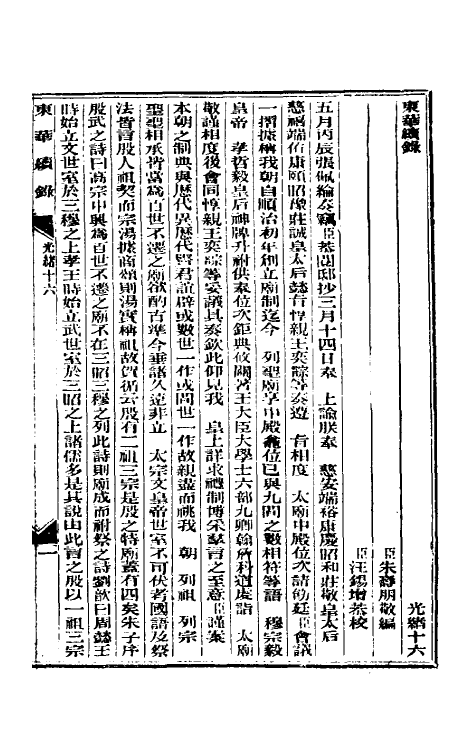 東華續錄
光緒十六
臣朱壽朋敬編
臣汪錫增恭校
五月丙辰張佩綸奏竊臣恭閱邸抄三月十四日奉　上諭朕奉　慈安端裕康慶昭和莊敬皇太后
慈禧端佑康頤昭豫莊誠皇太后懿旨惇親王奕誴等奏遵　旨相度　太廟中殿位次請飭廷臣會議
一摺據稱我朝自順治初年創立廟制迄今　列聖廟享中殿龕位已與九間之數相符等語　穆宗毅
皇帝　孝哲毅皇后神牌升祔供奉位次鉅典攸關著王大臣大學士六部九卿翰詹科道虔詣　太廟
敬謹相度後會同惇親王奕誴等妥議具奏欽此仰見我　皇上詳求禮制博采羣言之至意臣謹案
本朝之制與歷代異歷代賢君誼辟或數世一作或間世一作故親盡而祧我　朝　列祖　列宗
聖聖相承皆當為百世不遷之廟欲酌古準今垂諸久遠非立　太宗文皇帝世室不可伏考國語及祭
法皆言殷人祖契而宗湯據商頌則湯實稱祖故賀循云殷有二祖三宗是殷之特廟蓋有四矣朱子序
殷武之詩曰高宗中興為百世不遷之廟不在三昭三穆之列此詩則廟成而祔祭之詩劉歆曰周懿王
時始立文世室於三穆之上孝王時始立武世室於三昭之上諸儒多是其說由此言之殷以一祖三宗
東華續錄
光緒十六
一